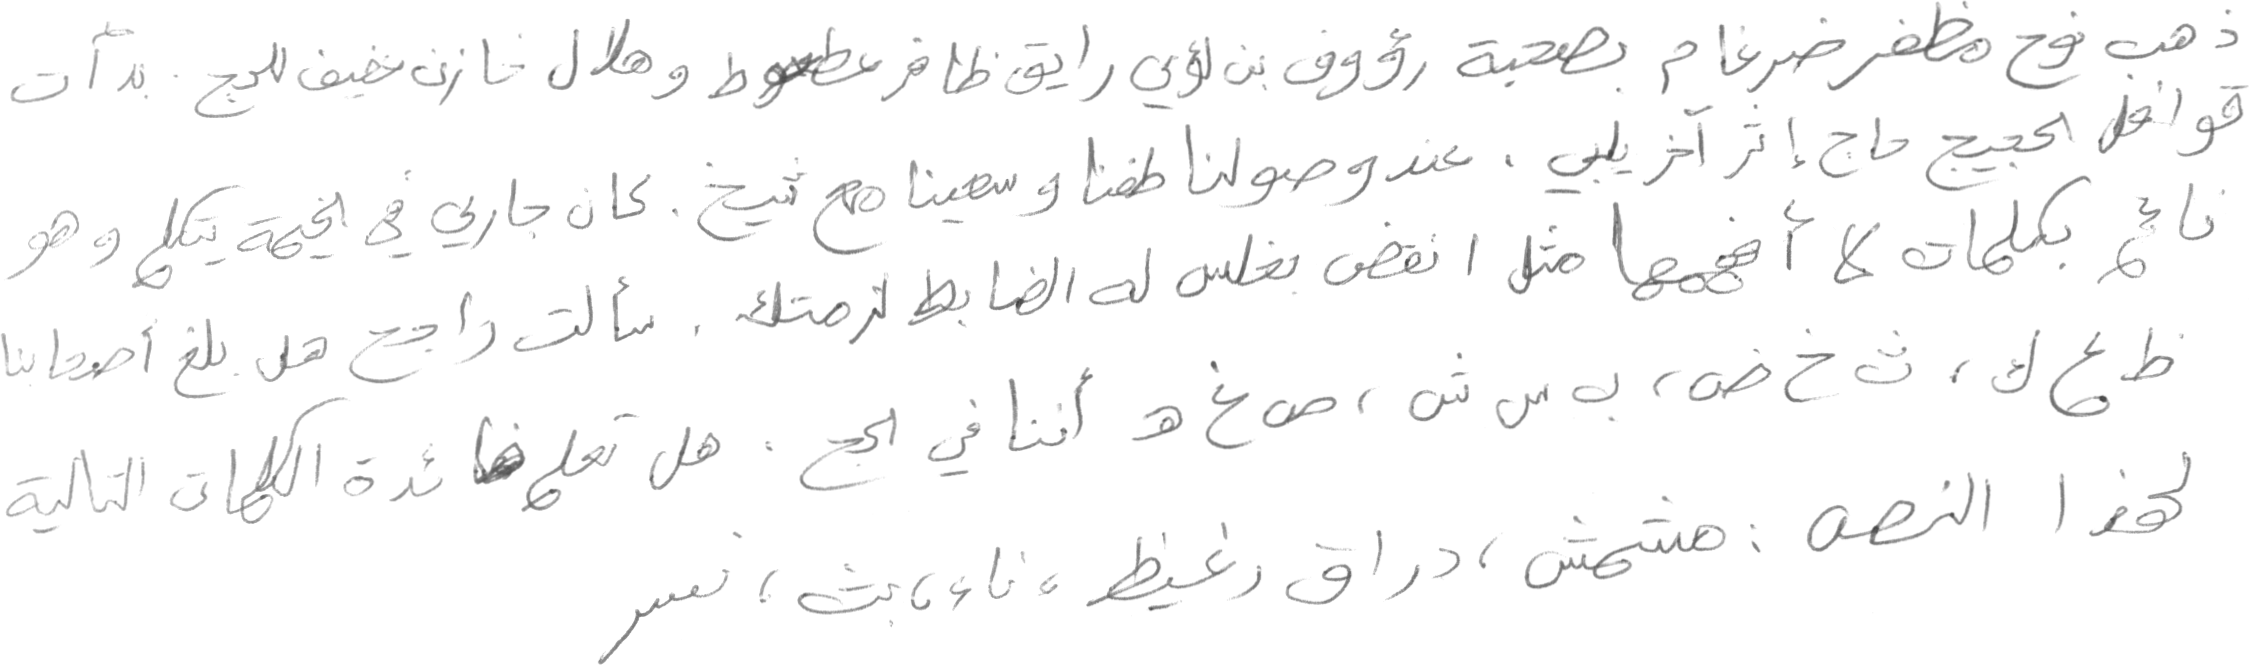 ذهب نوح مظفر ضرغام بصحبة رؤوف بن لؤي رايق ظافر عطعوط و هلال خازن نحيف للحج . بدأت
قوافل الحجيج حاج إثر آخر يلبي . عند وصولنا طفنا و سعينا مع شيخ . كان جاري في الخيمة يتكلم و هو
نائم بكلمات لا أفهمها مثل انقض بغلس له الضابط لزمتك . سألت راجح هل بلغ أصحابنا
ظ ع ك ، ث خ ض ، ب س ش ، ص غ هـ أننا في الحج . هل تعلم فائدة الكلمات التالية
لهذا النص : مشمش ، دراق ، غيظ ، ناء ، بث ، نسر